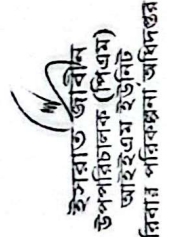 ইসরাত জাবীন
উপপরিচালক (পিএম)
আইইএম ইউনিট
রিবার পরিকল্পনা অধিদপ্তর